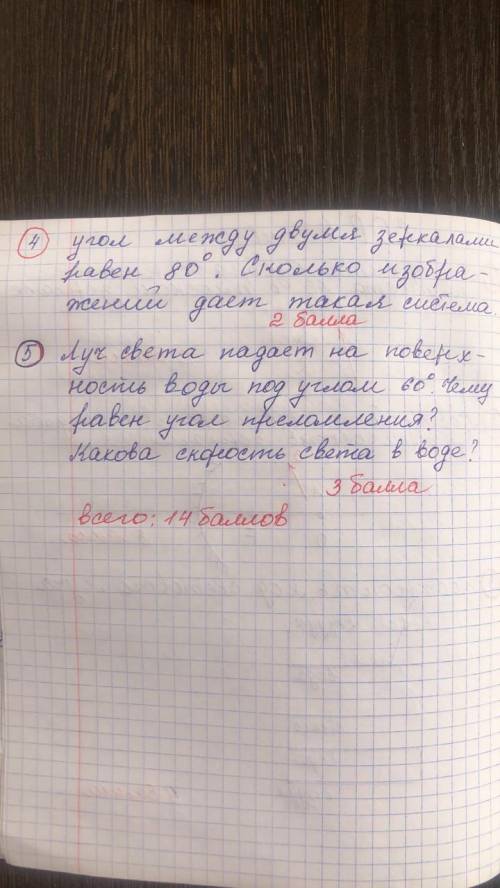 4 угол между двумя зеркалами
равен 80°. Сколько изобра-
жений дает такая система.
2 балла
5 Луч света падает на поверх-
ность воды под углом 60°. Чему
равен угол преломления?
Какова скорость света в воде?
3 балла
всего: 14 баллов